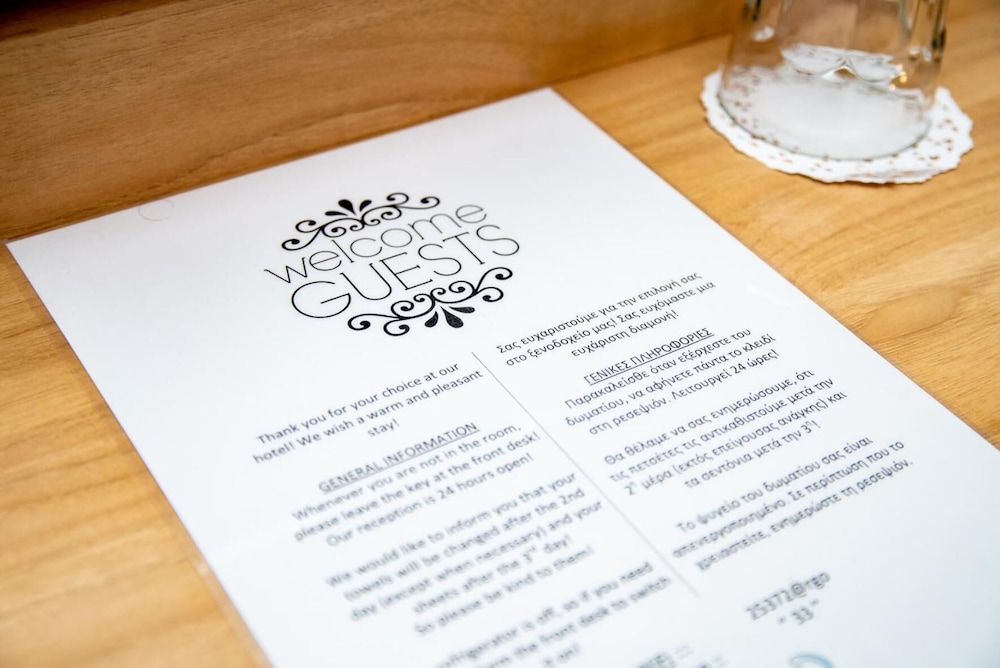 welcome
GUESTS
Thank you for your choice at our
hotel! We wish a warm and pleasant
stay!
GENERAL INFORMATION
Whenever you are not in the room,
please leave the key at the front desk!
Our reception is 24 hours open!
We would like to inform you that your
towels will be changed after the 2nd
day (except when necessary) and your
sheets after the 3rd day!
So please be kind to them!
is off, so if you need
the front desk to switch
it on!
Σας ευχαριστούμε για την επιλογή σας
στο ξενοδοχείο μας! Σας ευχόμαστε μια
ευχάριστη διαμονή!
ΓΕΝΙΚΕΣ ΠΛΗΡΟΦΟΡΙΕΣ
Παρακαλείσθε όταν εξέρχεστε του
δωματίου, να αφήνετε πάντα το κλειδί
στη ρεσεψιόν. Λειτουργεί 24 ώρες!
Θα θέλαμε να σας ενημερώσουμε, ότι
τις πετσέτες τις αντικαθιστούμε μετά την
2η μέρα (εκτός επείγουσας ανάγκης) και
τα σεντόνια μετά την 3η!
Το ψυγείο του δωματίου σας είναι
απενεργοποιημένο. Σε περίπτωση που το
χρειαστείτε, ενημερώστε τη ρεσεψιόν.